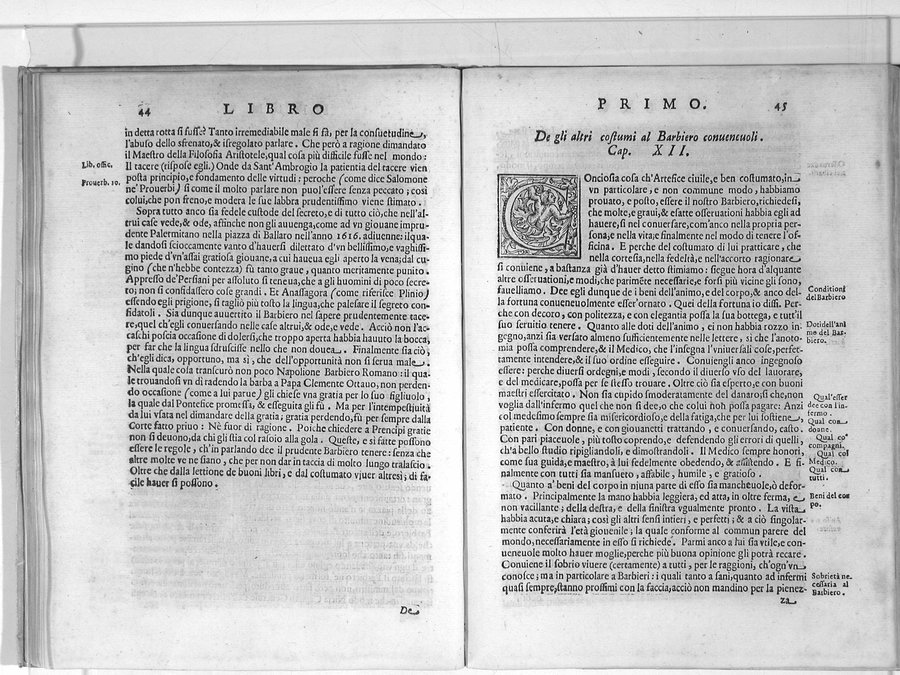 44 LIBRO
in detta rotta si fusse? Tanto irremediabile male si fà, per la consuetudine,
l'abuso dello sfrenato, & isregolato parlare. Che però a ragione dimandato
il Maestro della Filosofia Aristotele, qual cosa più difficile fusse nel mondo:
Il tacere (rispose egli.) Onde da Sant'Ambrogio la patientia del tacere vien
posta principio, e fondamento delle virtudi: peroche (come dice Salomone
ne' Prouerbi) si come il molto parlare non puol'essere senza peccato; così
colui, che pon freno, e modera le sue labbra prudentissimo viene stimato.
Lib. offic.
Prouerb. 10.
Sopra tutto anco sia fedele custode del secreto, e di tutto ciò, che nell'al-
trui case vede, & ode, affinche non gli auuenga, come ad vn giouane impru-
dente Palermitano nella piazza di Ballaro nell'anno 1616. adiuenne: il qua-
le dandosi scioccamente vanto d'hauersi dilettato d'vn bellissimo, e vaghissi-
mo piede d'vn'assai gratiosa giouane, a cui haueua egli aperto la vena; dal cu-
gino (che n'hebbe contezza) fù tanto graue, quanto meritamente punito.
Appresso de'Persiani per assoluto si teneua, che a gli huomini di poco secre-
to; non si confidassero cose grandi. Et Anassagora (come riferisce Plinio)
essendo egli prigione, si tagliò più tosto la lingua, che palesare il segreto con-
fidatoli. Sia dunque auuertito il Barbiero nel sapere prudentemente tace-
re, quel ch'egli conuersando nelle case altrui, & ode, e vede. Acciò non l'ac-
caschi poscia occasione di dolersi, che troppo aperta habbia hauuto la bocca,
per far che la lingua sdruscisse nello che non doue. Finalmente sia ciò,
ch'egli dica, opportuno, ma sì, che dell'opportunità non si serua male.
Nella quale cosa transcurò non poco Napolione Barbiero Romano: il qua-
le trouandosi vn dì radendo la barba a Papa Clemente Ottauo, non perden-
do occasione (come a lui parue) gli chiese vna gratia per lo suo figliuolo,
la quale dal Pontefice promessa, & esseguita gli fù. Ma per l'intempestiuità
da lui vsata nel dimandare della gratia; gratia perdendo, fù per sempre dalla
Corte fatto priuo: Nè fuor di ragione. Poiche chiedere a Prencipi gratie
non si deuono, da chi gli sta col rasoio alla gola. Queste, e sì fatte possono
essere le regole, ch'in parlando dee il prudente Barbiero tenere: senza che
altre molte ve ne siano, che per non dar in taccia di molto lungo tralascio.
Oltre che dalla lettione de buoni libri, e dal costumato viuer altresì; di fa-
cile hauer si possono.
De
PRIMO. 45
De gli altri costumi al Barbiero conuencuoli.
Cap. XII.
COnciosia cosa ch'Artefice ciuile, e ben costumato, in
vn particolare, e non commune modo, habbiamo
prouato, e posto, essere il nostro Barbiero, richiedesi,
che molte, e graui, & esatte osseruationi habbia egli ad
hauere, sì nel conuersare, com'anco nella propria per-
sona, e nella vita; e finalmente nel modo di tenere l'of-
ficina. E perche del costumato di lui pratticare, che
nella cortesia, nella fedeltà, e nell'accorto ragionare
si conuiene, a bastanza già d'hauer detto stimiamo: siegue hora d'alquante
altre osseruationi, e modi, che parimẽte necessarie, e forsi più vicine gli sono,
fauelliamo. Dee egli dunque de i beni dell'animo, e del corpo, & anco del-
la fortuna conueneuolmente esser'ornato. Quei della fortuna io dissi. Per-
che con decoro, con politezza, e con elegantia possa la sua bottega, e tutt'il
suo seruitio tenere. Quanto alle doti dell'animo, ei non habbia rozzo in-
gegno, anzi sia versato almeno sufficientemente nelle lettere, sì che l'anoto-
mia possa comprendere, & il Medico, che l'insegna l'vniuersali cose, perfet-
tamente intendere, & il suo ordine esseguire. Conuiengli anco ingegnoso
essere: perche diuersi ordegni, e modi, secondo il diuerso vso del lauorare,
e del medicare, possa per se stesso trouare. Oltre ciò sia esperto, e con buoni
maestri essercitato. Non sia cupido smoderatamente del danaro; sì che, non
voglia dall'infermo quel che non si dee, o che colui non possa pagare: Anzi
col medesimo sempre sia misericordioso, e della fatiga, che per lui sostiene,
patiente. Con donne, e con giouanetti trattando, e conuersando, casto.
Con pari piaceuole, più tosto coprendo, e defendendo gli errori di quelli,
ch'a bello studio ripigliandoli, e dimostrandoli. Il Medico sempre honori,
come sua guida, e maestro, à lui fedelmente obedendo, & assistendo. E fi-
nalmente con tutti sia mansueto, affabile, humile, e gratioso.
Quanto a' beni del corpo in niuna parte di esso sia mancheuole, ò defor-
mato. Principalmente la mano habbia leggiera, ed atta, in oltre ferma, e
non vacillante; della destra, e della sinistra vgualmente pronto. La vista
habbia acuta, e chiara; così gli altri sensi intieri, e perfetti; & a ciò singolar-
mente conferirà l'età giouenile; la quale conforme al commun parere del
mondo, necessariamente in esso si richiede. Parmi anco a lui sia vtile, e con-
ueneuole molto hauer moglie, perche più buona opinione gli potrà recare.
Conuiene il sobrio viuere (certamente) a tutti, per le raggioni, ch'ogn'vn
conosce; ma in particolare a Barbieri: i quali tanto a sani, quanto ad infermi
quasi sempre, stanno prossimi con la faccia, acciò non mandino per la pienez-
za
Conditioni
del Barbiero
Doti dell'ani
mo del Bar-
biero.
Qual'esser
dee con l'in-
fermo.
Qual con
donne.
Qual co'
compagni.
Qual col
Medico.
Qual con
tutti.
Beni del cor
po.
Sobrietà ne
cessaria al
Barbiero.